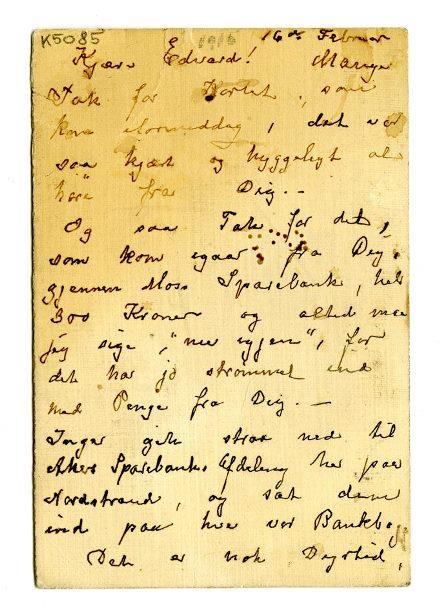 K5085 1916
16de Februar
Kjære Edvard! Mange
Tak for Kortet, som
kom iformiddag, det var
saa kjært og hyggeligt at
høre fra Dig. —
Og saa Tak for det,
som kom igaar fra Dig,
gjennem Moss Sparebank, hele
300 Kroner og altid maa
jeg sige, "nu igjen", for
det har jo strømmet ind
med Penge fra Dig. —
Inger gik straa ned til
Akers Sparebanks Afdeling her paa
Nordstrand, og sat dem
ind paa hver vor Bankbog
Det er nok Dyrtid,